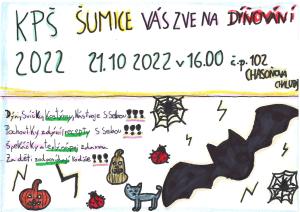 KPŠ ŠUMICE VÁS ZVE NA DÝŇOVÁNÍ
2022 21.10 2022 V 16.00 č.p. 102
CHASOŇOVA
CHALUPA
Dýni, Svíčky, Kostýmy, Nástroje S Sebou !!!
Pochoutky z dýní recepty S Sebou !!!
Špekáčky a zdarma
Za děti zodpovídají rodiče !!!